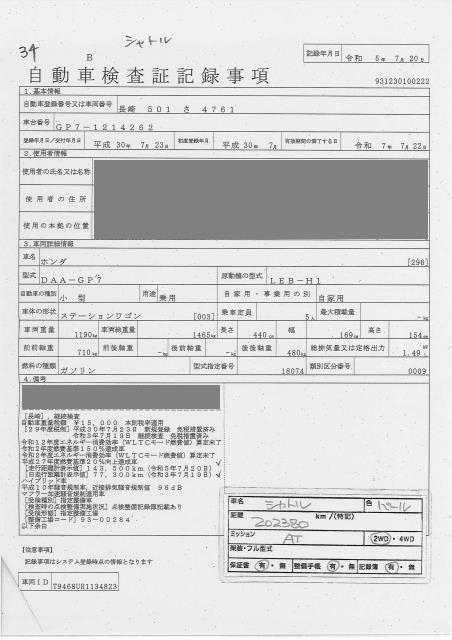 34
B
シャトル
記録年月日 令和 5年 7月20日
自動車検査証記録事項
931230100222
1.基本情報
自動車登録番号又は車両番号 長崎 501 さ 4761
車台番号 GP7-1214262
登録年月日/交付年月日 平成 30年 7月 23日 初度登録年月 平成 30年 7月 有効期間の満了する日 令和 7年 7月 22日
2.使用者情報
使用者の氏名又は名称
使用者の住所
使用の本拠の位置
3.車両詳細情報
車名 ホンダ [296]
型式 DAA-GP7 原動機の型式 LEB-H1
自動車の種別 小型 用途 乗用 自家用・事業用の別 自家用
車体の形状 ステーションワゴン [003] 乗車定員 5人 最大積載量 -kg
車両重量 1190kg 車両総重量 1465kg 長さ 440cm 幅 169cm 高さ 154cm
前前軸重 710kg 前後軸重 -kg 後前軸重 -kg 後後軸重 480kg 総排気量又は定格出力 1.49 kW L
燃料の種類 ガソリン 型式指定番号 18074 類別区分番号 0009
4.備考
[長崎],継続検査
自動車重量税額 ¥15,000 本則税率適用
[29年度税制]平成30年7月23日 新規登録 免税措置済み
令和3年7月19日 継続検査 免税措置済み
令和12年度エネルギー消費効率(WLTCモード燃費値)算定未了
令和2年度燃費基準150%達成車
令和2年度エネルギー消費効率(WLTCモード燃費値)算定未了
平成27年度燃費基準20%向上達成車
[走行距離計表示値]143,500km(令和5年7月20日)
[旧走行距離計表示値]77,300km(令和3年7月19日)
ハイブリッド車
平成10年騒音規制車,近接排気騒音規制値 96dB
マフラー加速騒音規制適用車
[受検種別]指定整備車
[検査時の点検整備実施状況]点検整備記録簿記載あり
[受検形態]指定整備工場
[整備工場コード]93-00284
以下余白
車名 シャトル 色 パール
距離 202380 km/(特記)
ミッション AT 2WD・4WD
架装・フル型式
保証書 有・無 整備手帳 有・無 記録簿 有・無
【注意事項】
記録事項はシステム登録時点の情報となります
車両ID T9468UR1134823